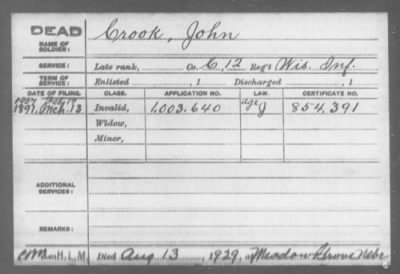 DEAD
NAME OF SOLDIER: Crook, John
SERVICE: Late rank, Co. C, 12 Reg't Wis. Inf.
TERM OF SERVICE: Enlisted , 1 Discharged , 1
DATE OF FILING. CLASS. APPLICATION NO. LAW. CERTIFICATE NO.
1891, Mch. 13 Invalid, 1.003.640 age J 854.391
Widow,
Minor,
ADDITIONAL SERVICES:
REMARKS:
H.L.M. Died Aug 13, 1929, at Meadow Grove Nebr